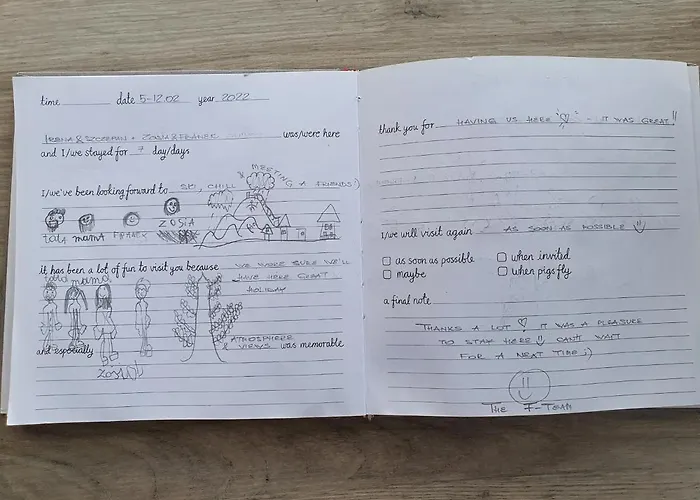 time date 5-12.02 year 2022
IRENA & SZCZEPAN + ZOSIA & FRANEK was/were here
and I/we stayed for 7 day/days
& MEETING A FRIENDS:)
I/we've been looking forward to SKI, CHILL
tata mama FRANEK ZOSIA
It has been a lot of fun to visit you because WE WERE SURE WE'LL
HAVE HERE GREAT
HOLIDAY
tata mama
ATMOSPHERE
and especially & VIEWS was memorable
ZOSIA
thank you for HAVING US HERE - IT WAS GREAT!
I/we will visit again AS SOON AS POSSIBLE
as soon as possible when invited
maybe when pigs fly
a final note
THANKS A LOT IT WAS A PLEASURE
TO STAY HERE CAN'T WAIT
FOR A NEXT TIME ;)
THE F-TEAM